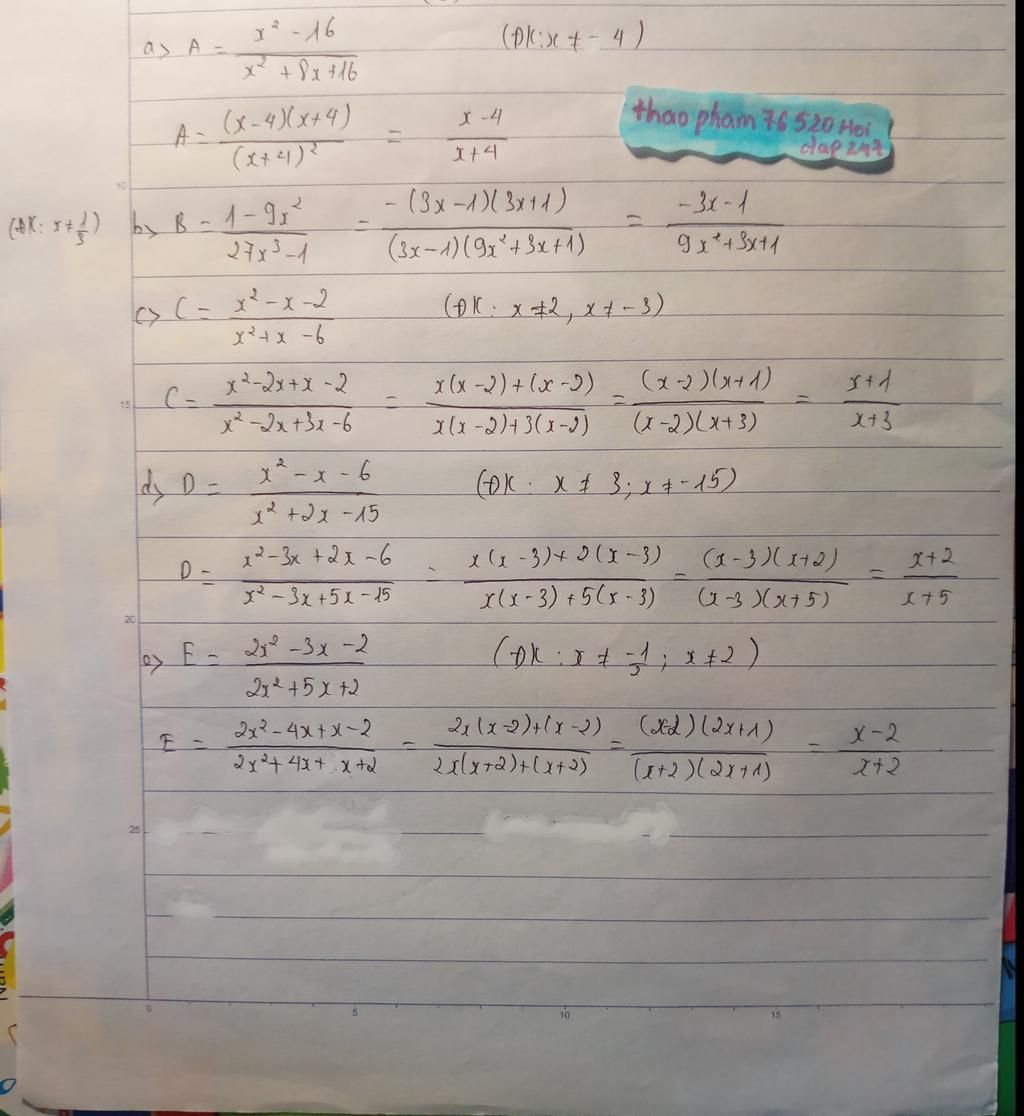 a> A = (x² - 16)/(x² + 8x + 16) (ĐK: x ≠ - 4)
thao pham 76 520 Hoi
dap 247
A = ((x-4)(x+4))/((x+4)²) = (x-4)/(x+4)
10
(ĐK: x ≠ 1/3) b> B = (1 - 9x²)/(27x³ - 1) = (-(3x-1)(3x+1))/((3x-1)(9x²+3x+1)) = (-3x-1)/(9x²+3x+1)
c> C = (x² - x - 2)/(x² + x - 6) (ĐK: x ≠ 2, x ≠ -3)
15
C = (x²-2x+x-2)/(x²-2x+3x-6) = (x(x-2)+(x-2))/(x(x-2)+3(x-2)) = ((x-2)(x+1))/((x-2)(x+3)) = (x+1)/(x+3)
d> D = (x² - x - 6)/(x² + 2x - 15) (ĐK: x ≠ 3; x ≠ -15)
D = (x²-3x+2x-6)/(x²-3x+5x-15) = (x(x-3)+2(x-3))/(x(x-3)+5(x-3)) = ((x-3)(x+2))/((x-3)(x+5)) = (x+2)/(x+5)
20
e> E = (2x² - 3x - 2)/(2x² + 5x + 2) (ĐK: x ≠ ; x ≠ 2)
E = (2x²-4x+x-2)/(2x²+4x+x+2) = (2x(x-2)+(x-2))/(2x(x+2)+(x+2)) = ((x-2)(2x+1))/((x+2)(2x+1)) = (x-2)/(x+2)
25
0 5 10 15